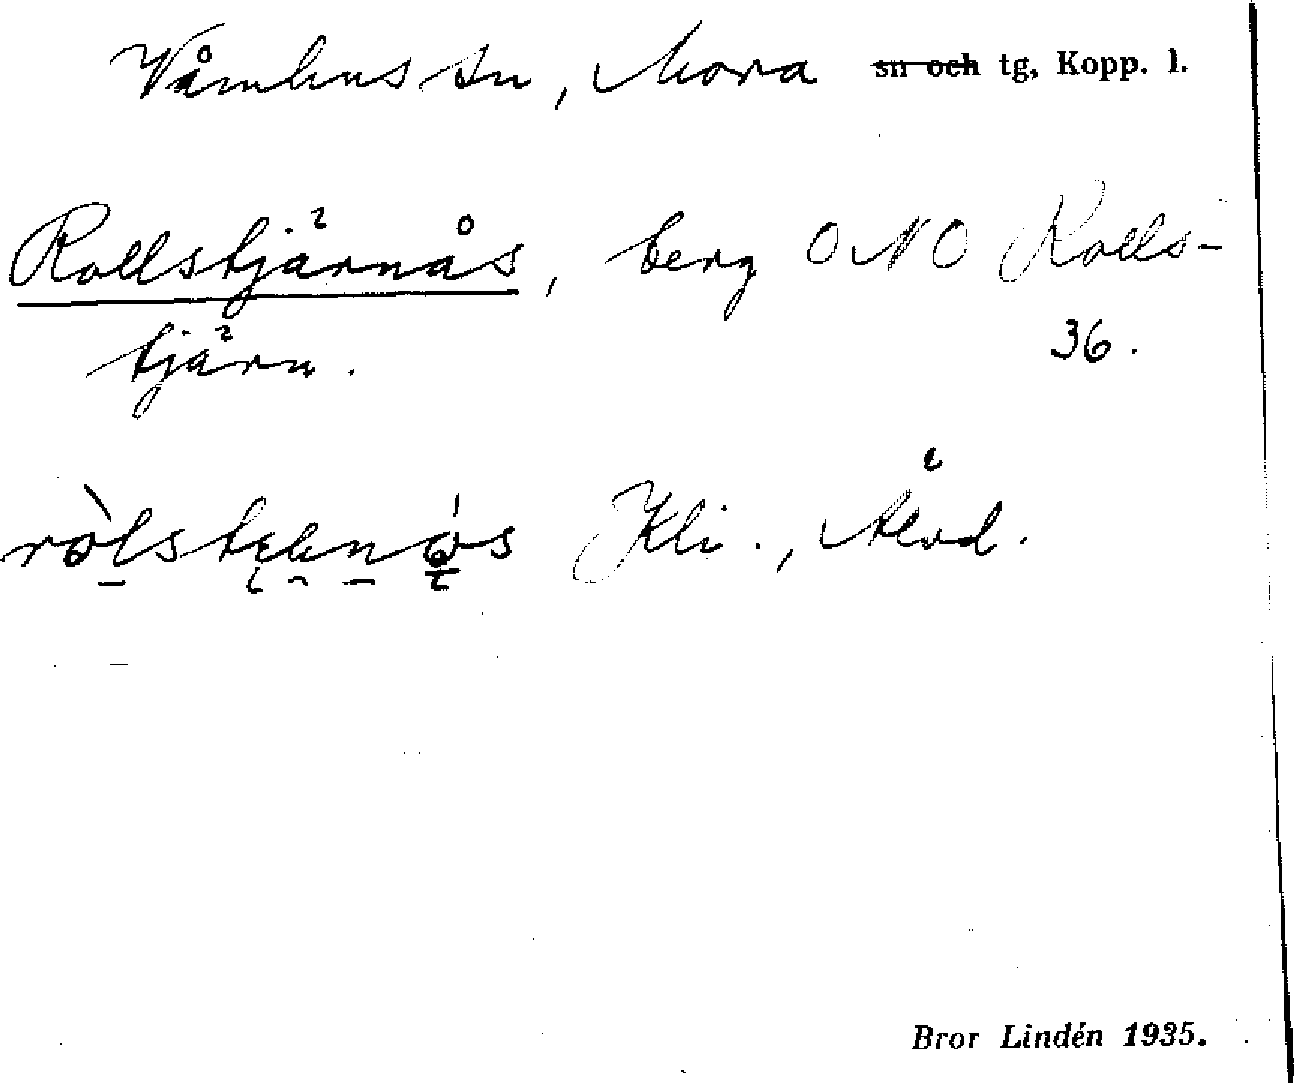 Våmhus sn, Mora ~~sn och~~ tg, Kopp. l.
Rollstjärnås, berg ONO Rolls-
tjärn. 36.
Kli., Älvd.
Bror Lindén 1935.